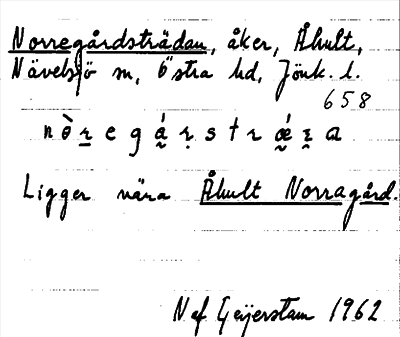 Norregårdsträdan, åker, Åhult,
Nävelsjö sn, Östra hd, Jönk. l.
658
nòṟegá̰ṛstrǽ̰ṟa
Ligger nära Åhult Norragård.
Naf Geijerstam 1962